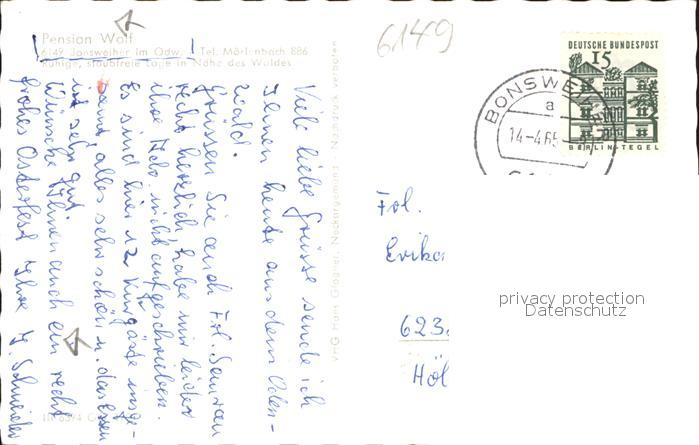 Pension Wolf
6149 Bonsweiher im Odw. Tel. Mörlenbach 886
Ruhige, staubfreie Lage in Nähe des Waldes
6149
DEUTSCHE BUNDESPOST
15
BERLIN-TEGEL
BONSWEIHER
a
14-4.65
Viele liebe Grüsse sende ich
Ihnen heute aus dem Oden-
wald.
Grüssen Sie auch Frl.
recht herzlich, habe mir leider
ihre Adr. nicht aufgeschrieben.
Es sind hier 12 Kurgäste insge-
samt, alles sehr schön u. das essen
ist sehr gut.
Wünsche Ihnen auch ein recht
frohes Osterfest Ihre H. Schneider
VHG Hans Glogner, Neckargemünd Nachdruck verboten
Frl.
Erika
623
Höl
privacy protection
Datenschutz